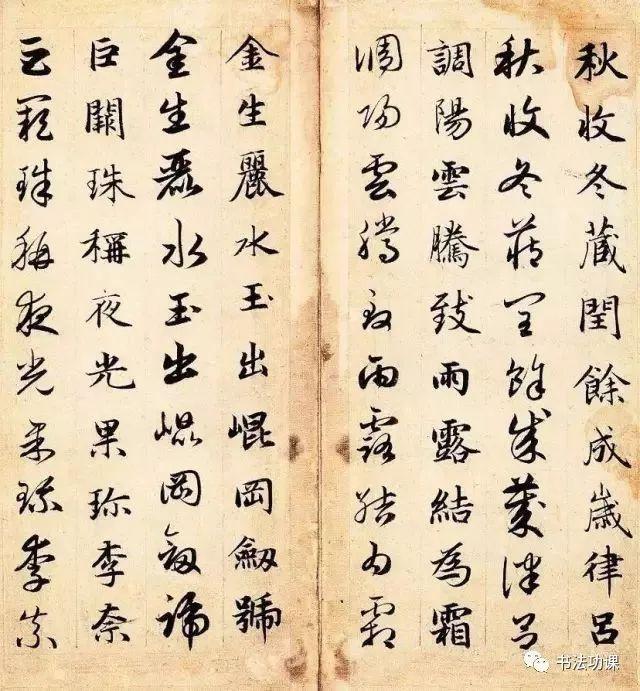 秋收冬藏閏餘成歲律呂
秋收冬藏閏餘成歲律呂
調陽雲騰致雨露結為霜
調陽雲騰致雨露結為霜
金生麗水玉出崐岡劒號
金生麗水玉出崐岡劒號
巨闕珠稱夜光果珎李柰
巨闕珠稱夜光果珎李柰
书法功课